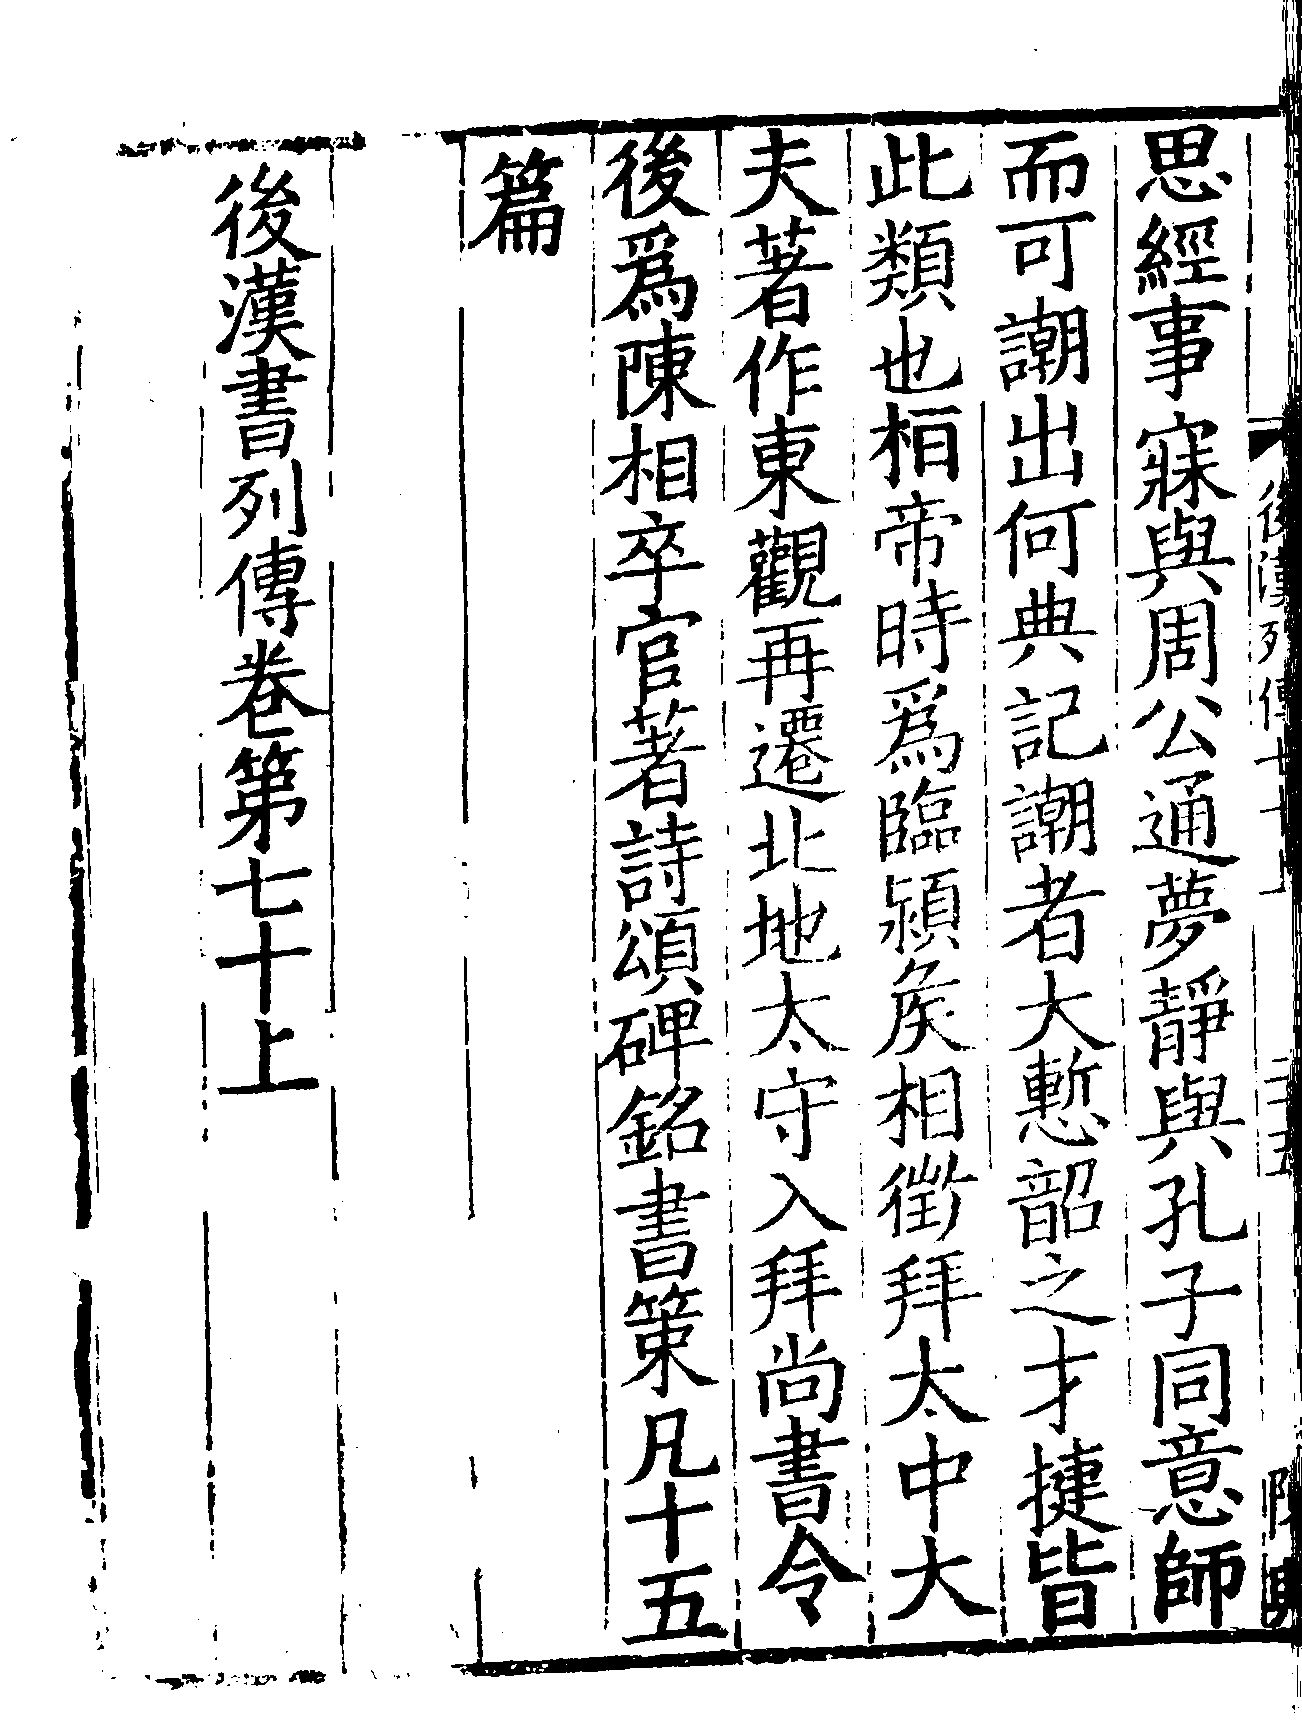 思經事寐與周公通夢靜與孔子同意師
而可謿出何典記謿者大慙韶之才捷皆
此類也桓帝時爲臨潁矦相徵拜太中大
夫著作東觀再遷北地太守入拜尚書令
後爲陳相卒官著詩頌碑銘書策凡十五
篇
後漢書列傳卷第七十上